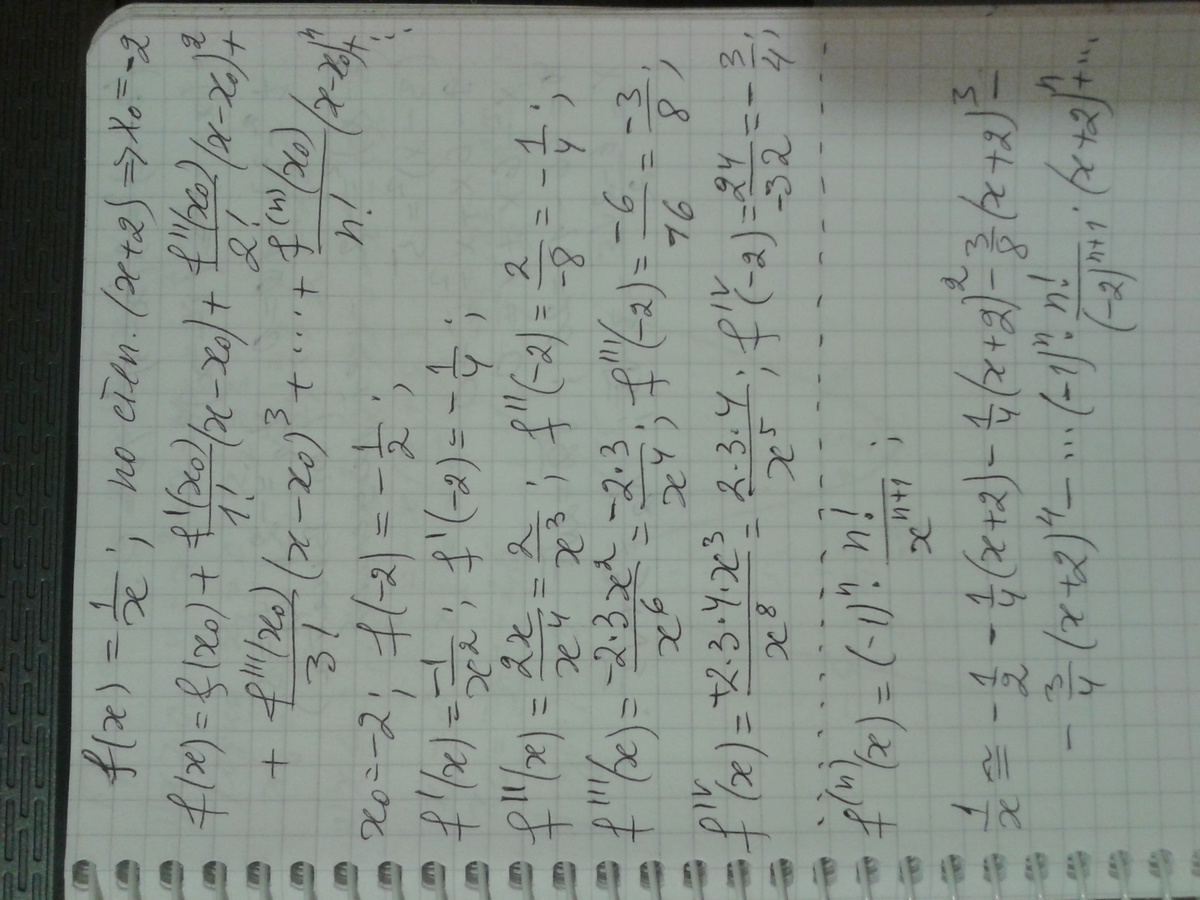 f(x) = 1/x; по степ. (x+2) => x₀ = -2
f(x) = f(x₀) + f'(x₀)/1! (x-x₀) + f''(x₀)/2! (x-x₀)² +
+ f'''(x₀)/3! (x-x₀)³ + ... + f⁽ⁿ⁾(x₀)/n! (x-x₀)ⁿ + ...
x₀ = -2; f(-2) = -1/2;
f'(x) = -1/x²; f'(-2) = -1/4;
f''(x) = 2x/x⁴ = 2/x³; f''(-2) = 2/-8 = -1/4;
f'''(x) = -2·3x²/x⁶ = -2·3/x⁴; f'''(-2) = -6/16 = -3/8;
f^IV(x) = +2·3·4·x³/x⁸ = 2·3·4/x⁵; f^IV(-2) = 24/-32 = -3/4;
f⁽ⁿ⁾(x) = (-1)ⁿ · n!/xⁿ⁺¹;
1/x ≅ -1/2 - 1/4(x+2) - 1/4(x+2)² - 3/8(x+2)³ -
- 3/4(x+2)⁴ - ... (-1)ⁿ · n!/(-2)ⁿ⁺¹ · (x+2)ⁿ + ...